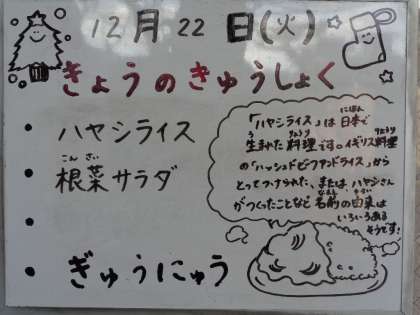 12月22日(火)
きょうのきゅうしょく
・ハヤシライス
こんさい
・根菜サラダ
・
・ぎゅうにゅう
にほん
「ハヤシライス」は日本で
う りょうり りょうり
生まれた料理です。イギリス料理
の「ハッシュドビーフアンドライス」から
とってつけられた、または ハヤシさん
なまえ ゆらい
がつくったことなど名前の由来は
いろいろある
そうです!